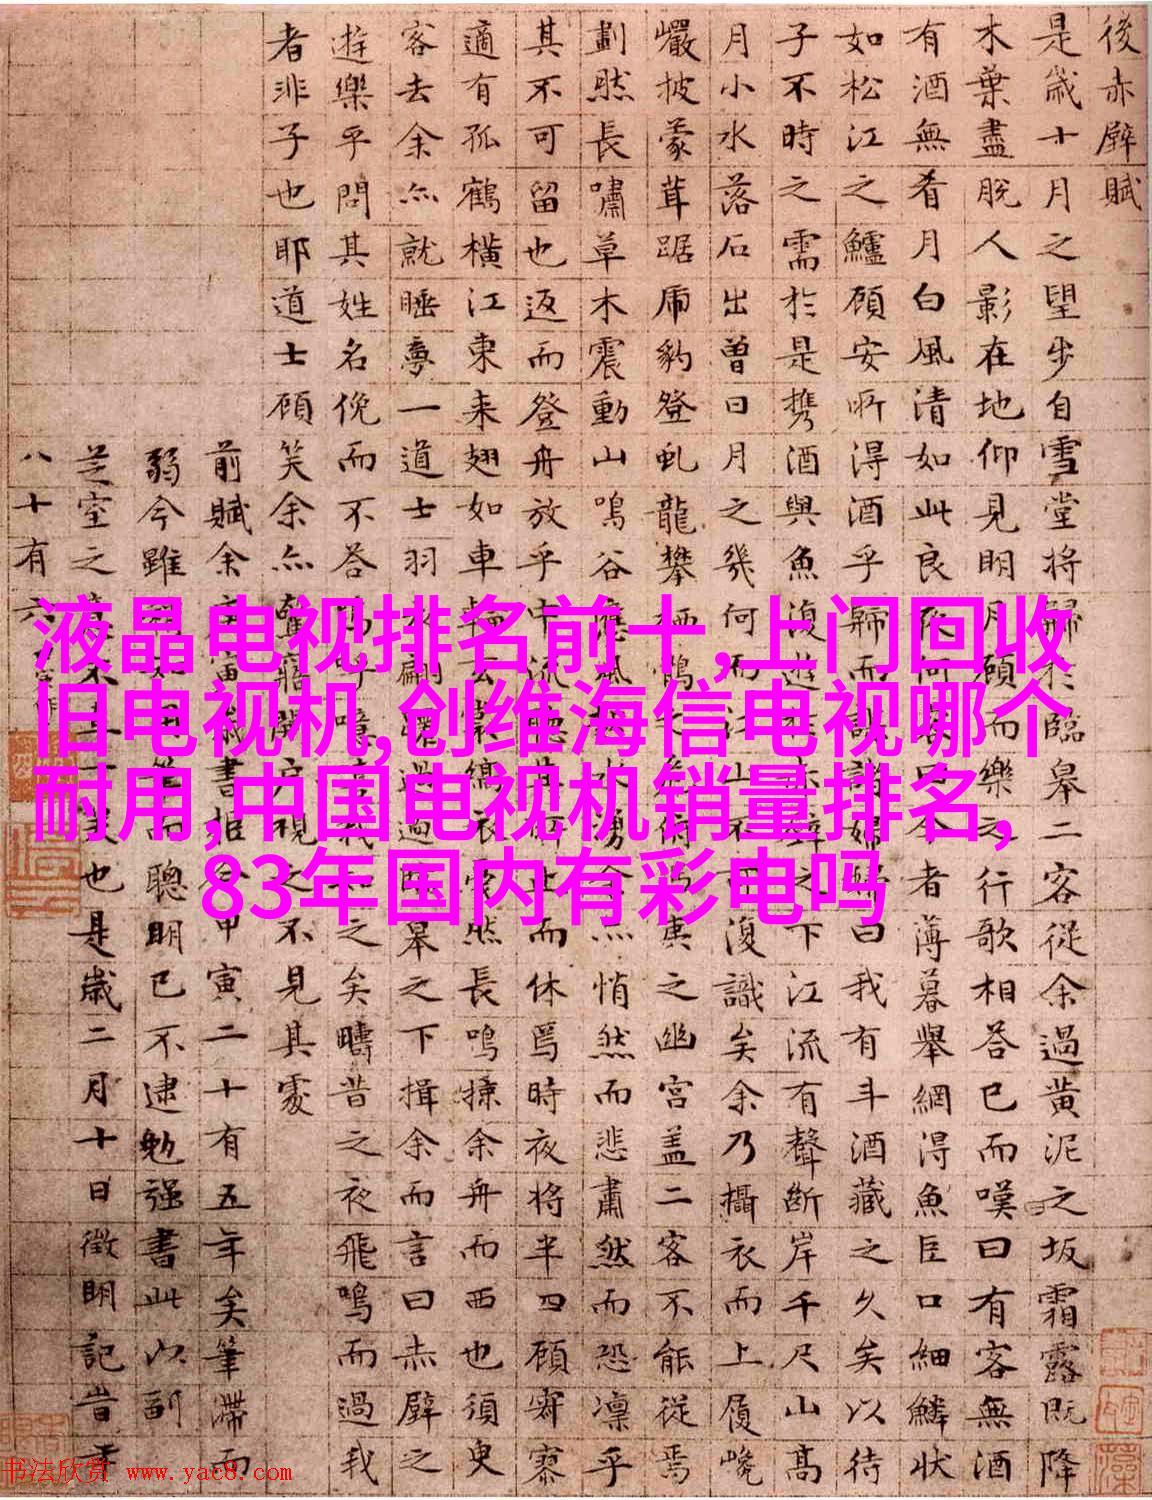 後赤壁賦
是歲十月之望步自雪堂將歸於臨皋二客從余過黃泥之坂霜露既降
木葉盡脫人影在地仰見明月顧而樂之行歌相答已而嘆曰有客無酒
有酒無肴月白風清如此良夜何客曰今者薄暮舉網得魚巨口細鱗狀
如松江之鱸顧安所得酒乎歸而謀諸婦婦曰我有斗酒藏之久矣以待
子不時之需於是攜酒與魚復遊於赤壁之下江流有聲斷岸千尺山高
月小水落石出曾日月之幾何而江山不可復識矣余乃攝衣而上履巉
巖披蒙茸踞虎豹登虬龍攀栖鶻之危俯馮夷之幽宮蓋二客不能從焉
劃然長嘯草木震動山鳴谷應風起水涌余亦悄然而悲肅然而恐凜乎
其不可留也返而登舟放乎中流聽其所止而休焉時夜將半四顧寂寥
適有孤鶴橫江東来翅如車輪玄裳縞衣戛然長鳴掠余舟而西也須臾
客去余亦就睡夢一道士羽衣翩躚過臨皋之下揖余而言曰赤壁之
遊樂乎問其姓名俛而不答嗚呼噫嘻我知之矣疇昔之夜飛鳴而過我
者非子也耶道士顧笑余亦驚寤開戶視之不見其處
前賦余庚寅歲書抵今甲寅二十有五年矣筆滯而
弱今雖筆而聰明已不逮勉强書此以副
芝室之不也是歲二月十日徵明記昔年
八十有六
液晶电视排名前十,上门回收
旧电视机,创维海信电视哪个
耐用,中国电视机销量排名,
83年国内有彩电吗
书法欣赏 www.yac8.com